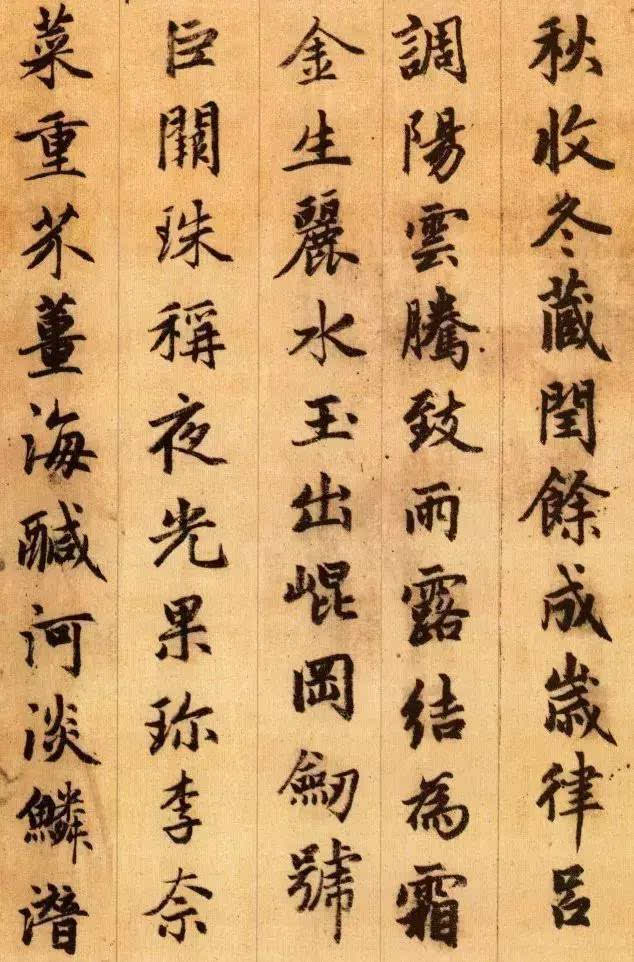 秋收冬蔵閏餘成歲律呂
調陽雲騰致雨露結為霜
金生麗水玉出崐岡劒號
巨闕珠稱夜光果珎李奈
菜重芥薑海醎河淡鱗潛